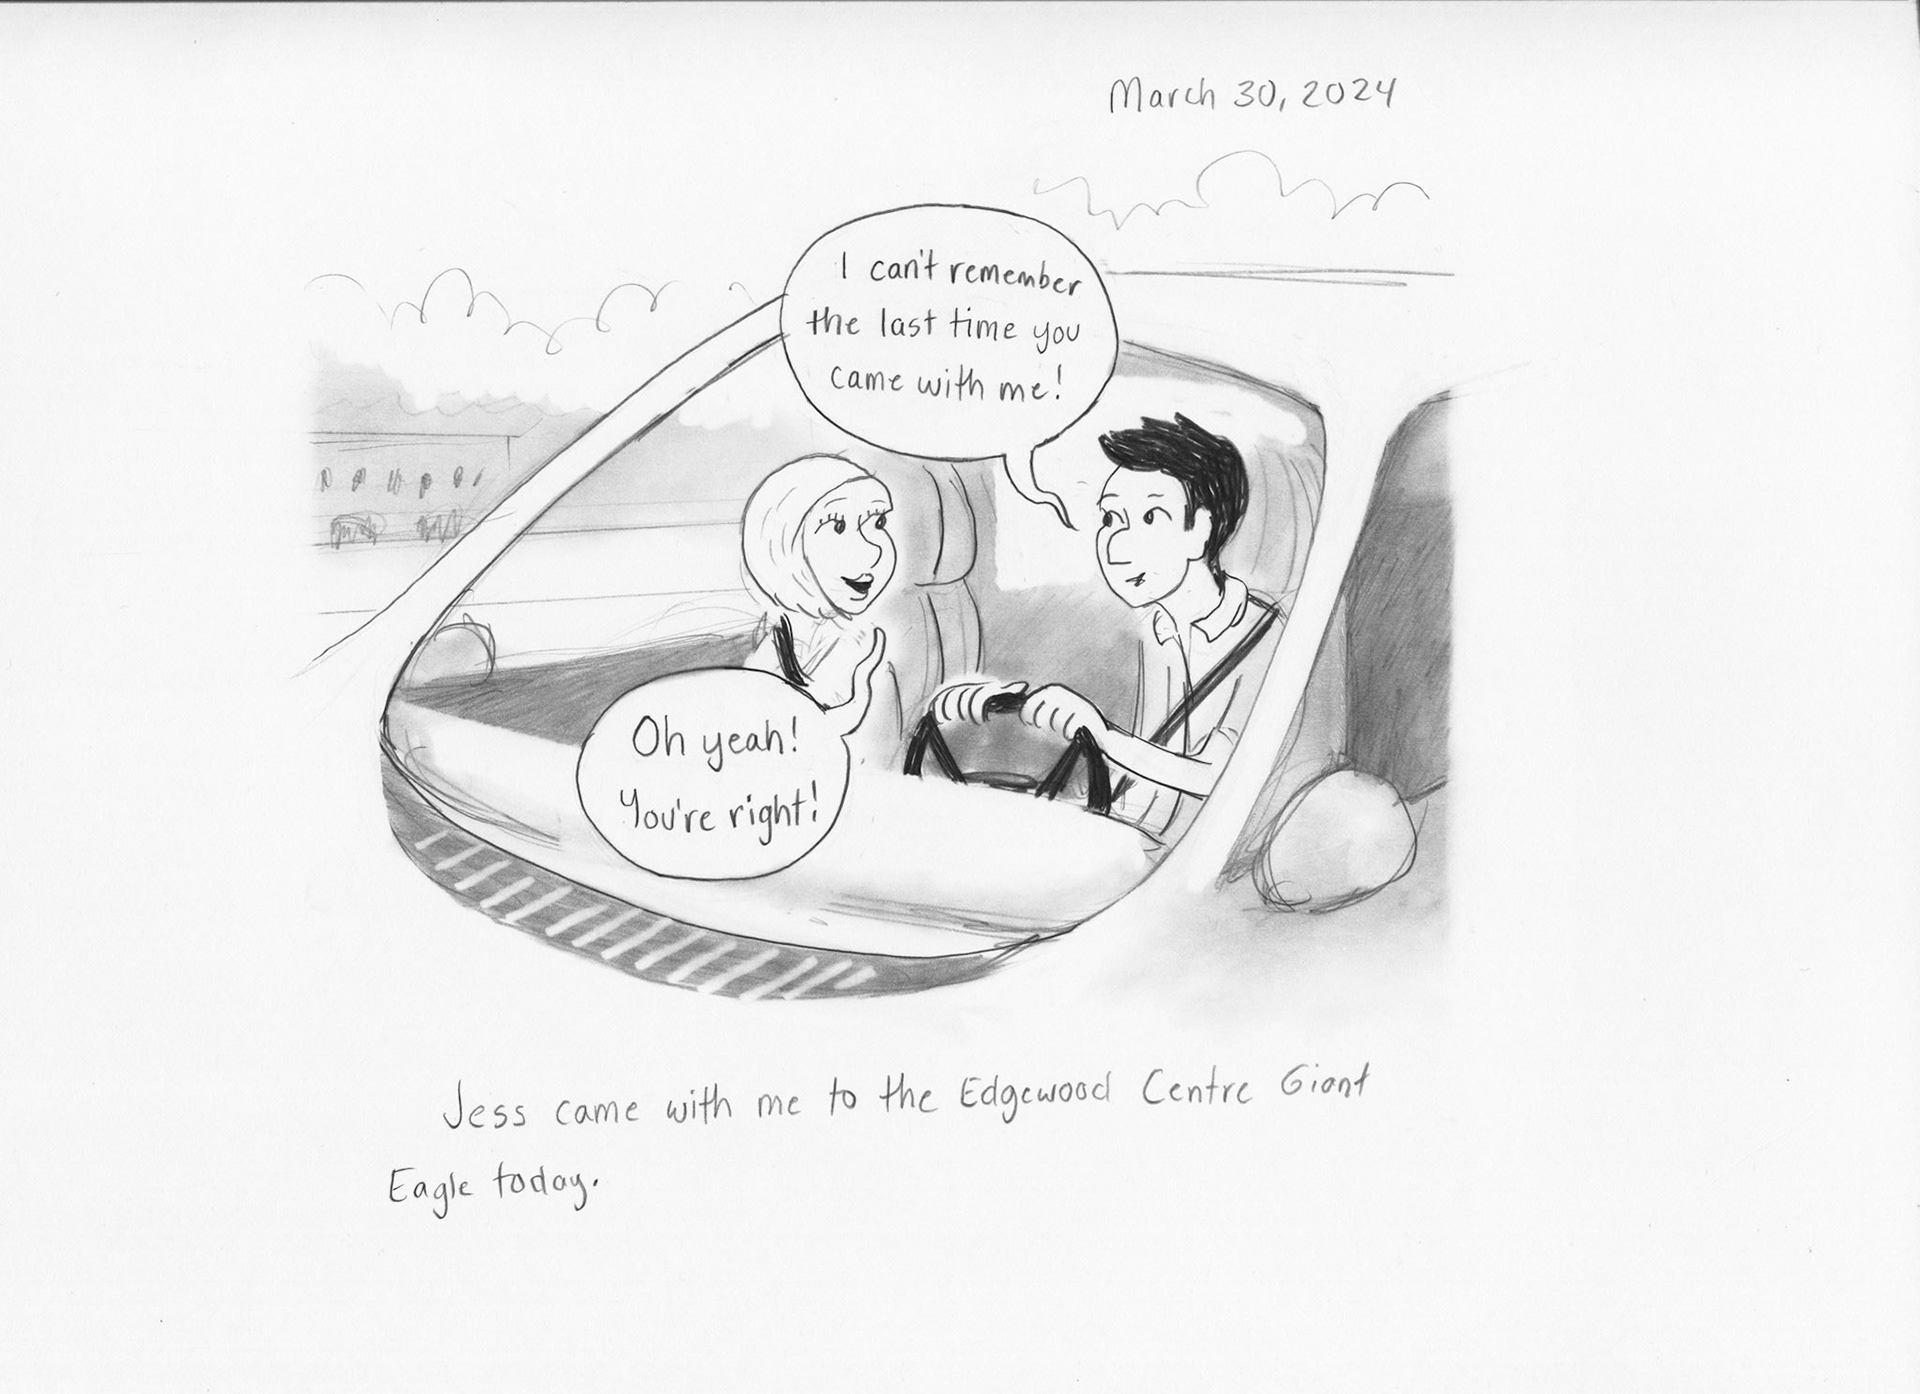 March 30, 2024
I can't remember
the last time you
came with me!
Oh yeah!
You're right!
Jess came with me to the Edgewood Centre Giant
Eagle today.